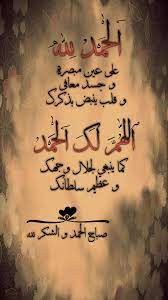 الحمد لله
على عين مبصرة
و جسد معافى
و قلب ينبض بذكرك
اللهم لك الحمد
كما ينبغي لجلال وجهك
و عظيم سلطانك
صباح الحمد و الشكر لله